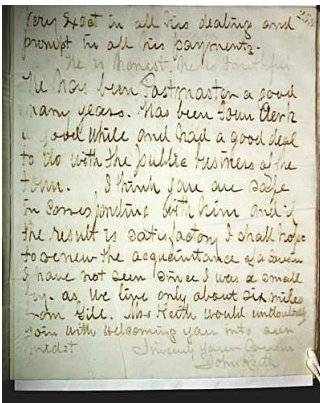 Very Exact in all his dealing and
prompt in all his payments.
He is honest. He is faithful
He has been Postmaster a good
many years. Has been Town Clerk
a good while and had a good deal
to do with the public business of the
town. I think you are safe
in corresponding with him and if
the result is satisfactory I shall hope
to renew the acquaintance of a cousin
I have not seen since I was a small
boy. as we live only about six miles
from Gill. Mrs Keith would undoubtedly
join with welcoming you into our
midst Sincerely your Cousin
John Keith